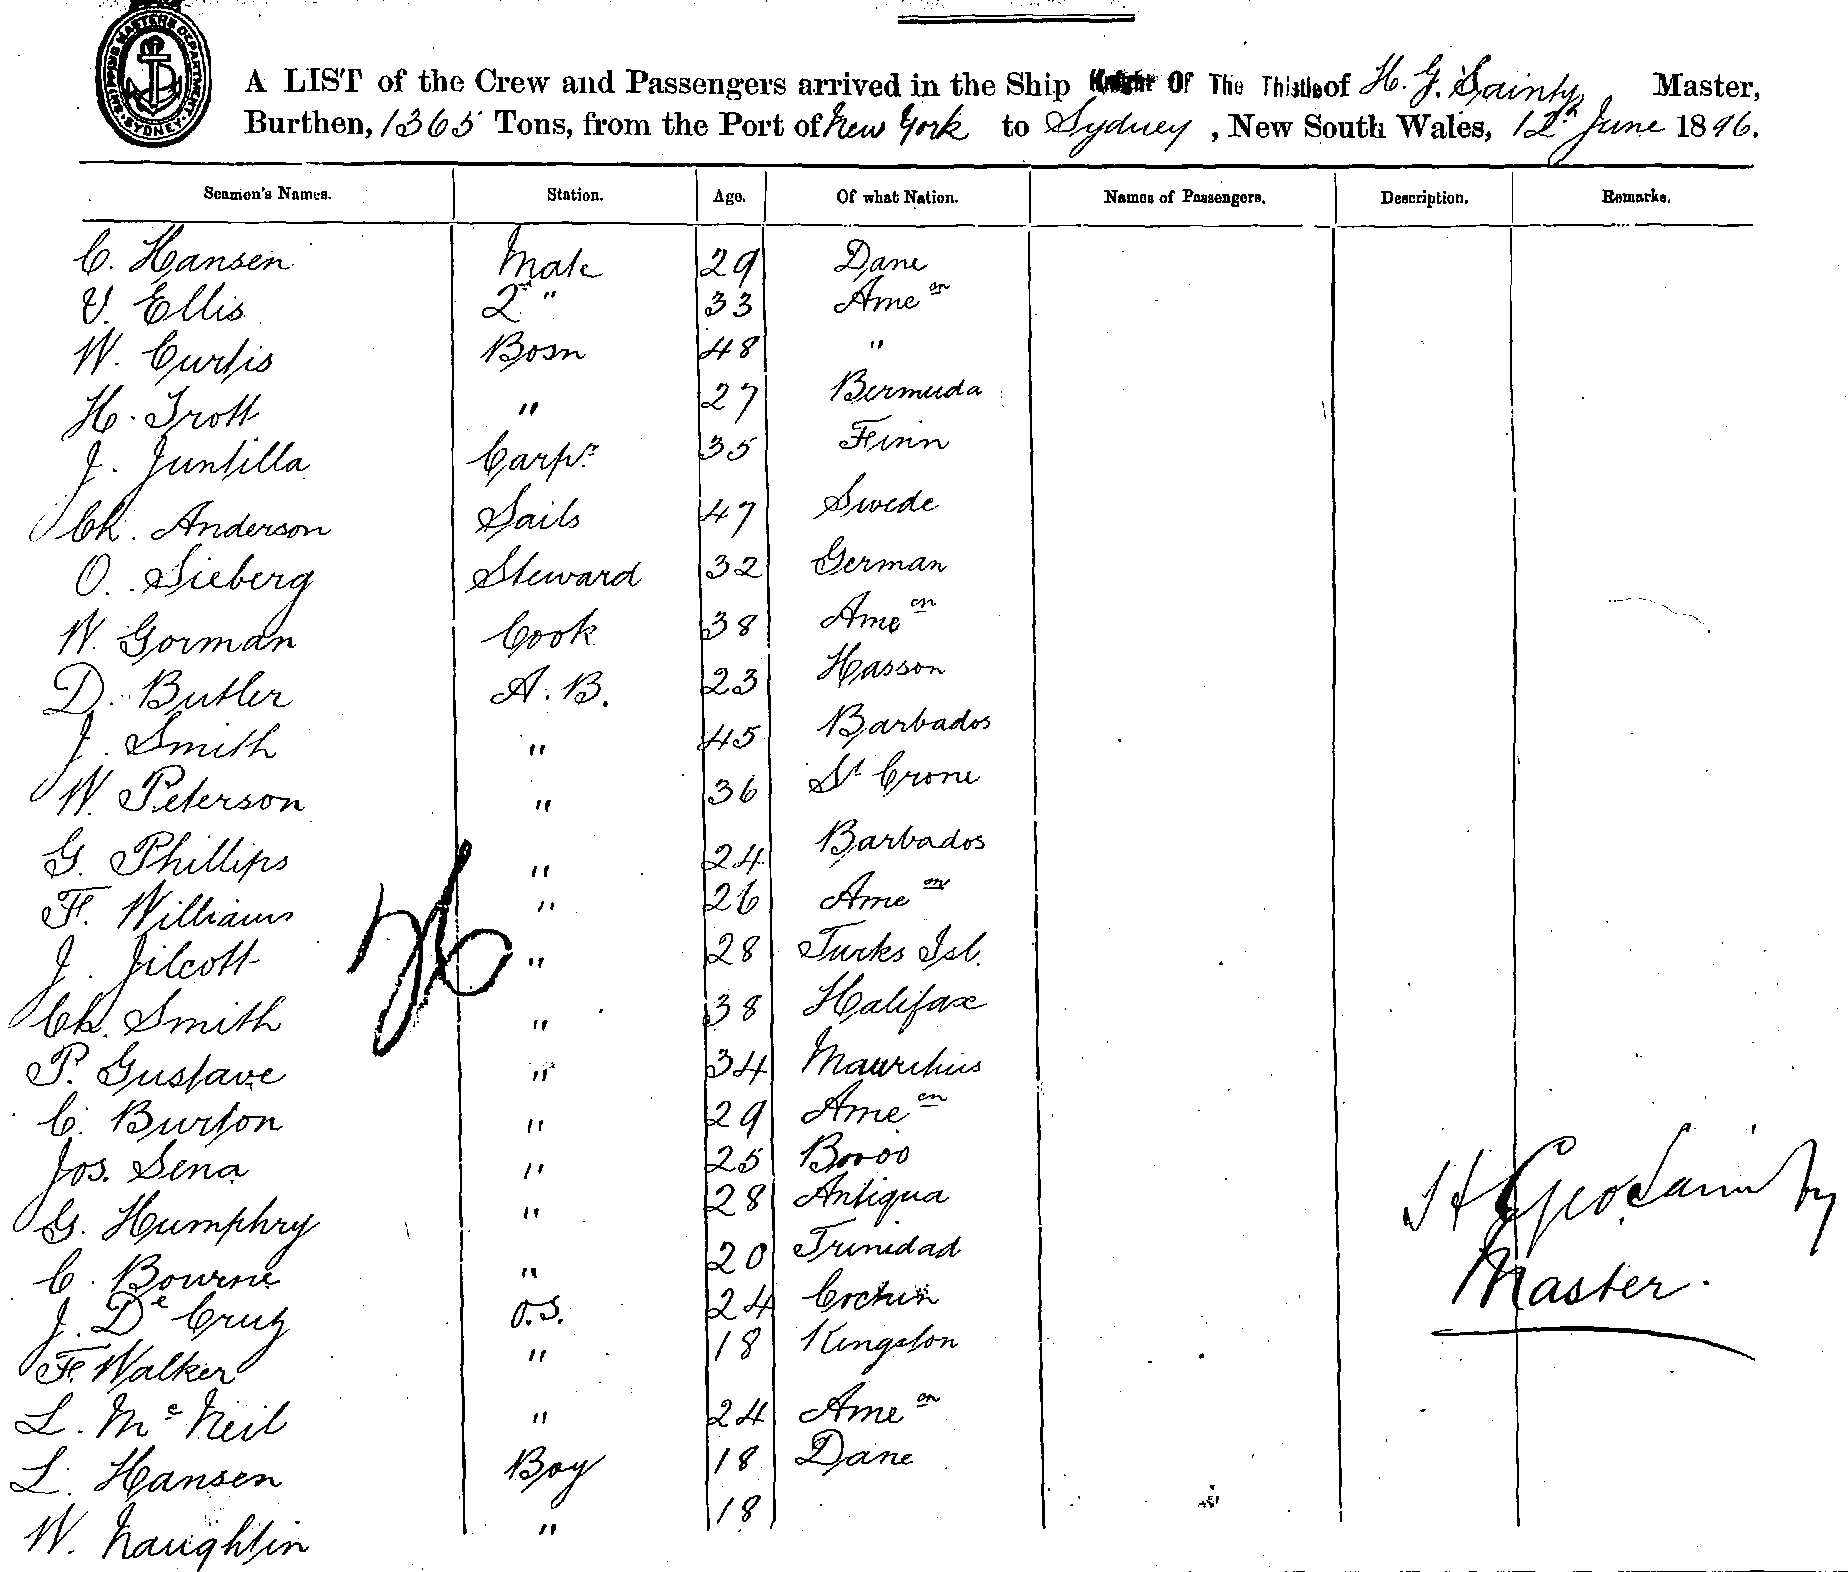 SHIPPING MASTERS DEPARTMENT SYDNEY
A LIST of the Crew and Passengers arrived in the Ship Knight Of The Thistle of H. G. Sainty Master,
Burthen, 1365 Tons, from the Port of New York to Sydney, New South Wales, 12th June 1896.
Seamen's Names. Station. Age. Of what Nation. Names of Passengers. Description. Remarks.
C. Hansen Mate 29 Dane
V. Ellis 2nd " 33 Ame cn
W. Curtis Bosn 48 "
H. Trott " 27 Bermuda
J. Juntilla Carpr. 35 Finn
Ch. Anderson Sails 47 Swede
O. Sieberg Steward 32 German
W. Gorman Cook 38 Ame cn
D. Butler A.B. 23 Nasson
J. Smith " 45 Barbados
W. Peterson " 36 St Crone
G. Phillips " 24 Barbados
F. Williams " 26 Ame cn
J. Jilcott " 28 Turks Isl.
Ch. Smith " 38 Halifax
P. Gustave " 34 Mauritius
C. Burton " 29 Ame cn
Jos. Sena " 25
G. Humphry " 28 Antiqua
C. Bourne " 20 Trinidad
J. De Cruz O.S. 24 Cochin
F. Walker " 18 Kingston
L. Mc Neil " 24 Ame cn
L. Hansen Boy 18 Dane
W. Naughtin " 18
H Geo. Sainty
Master.
26